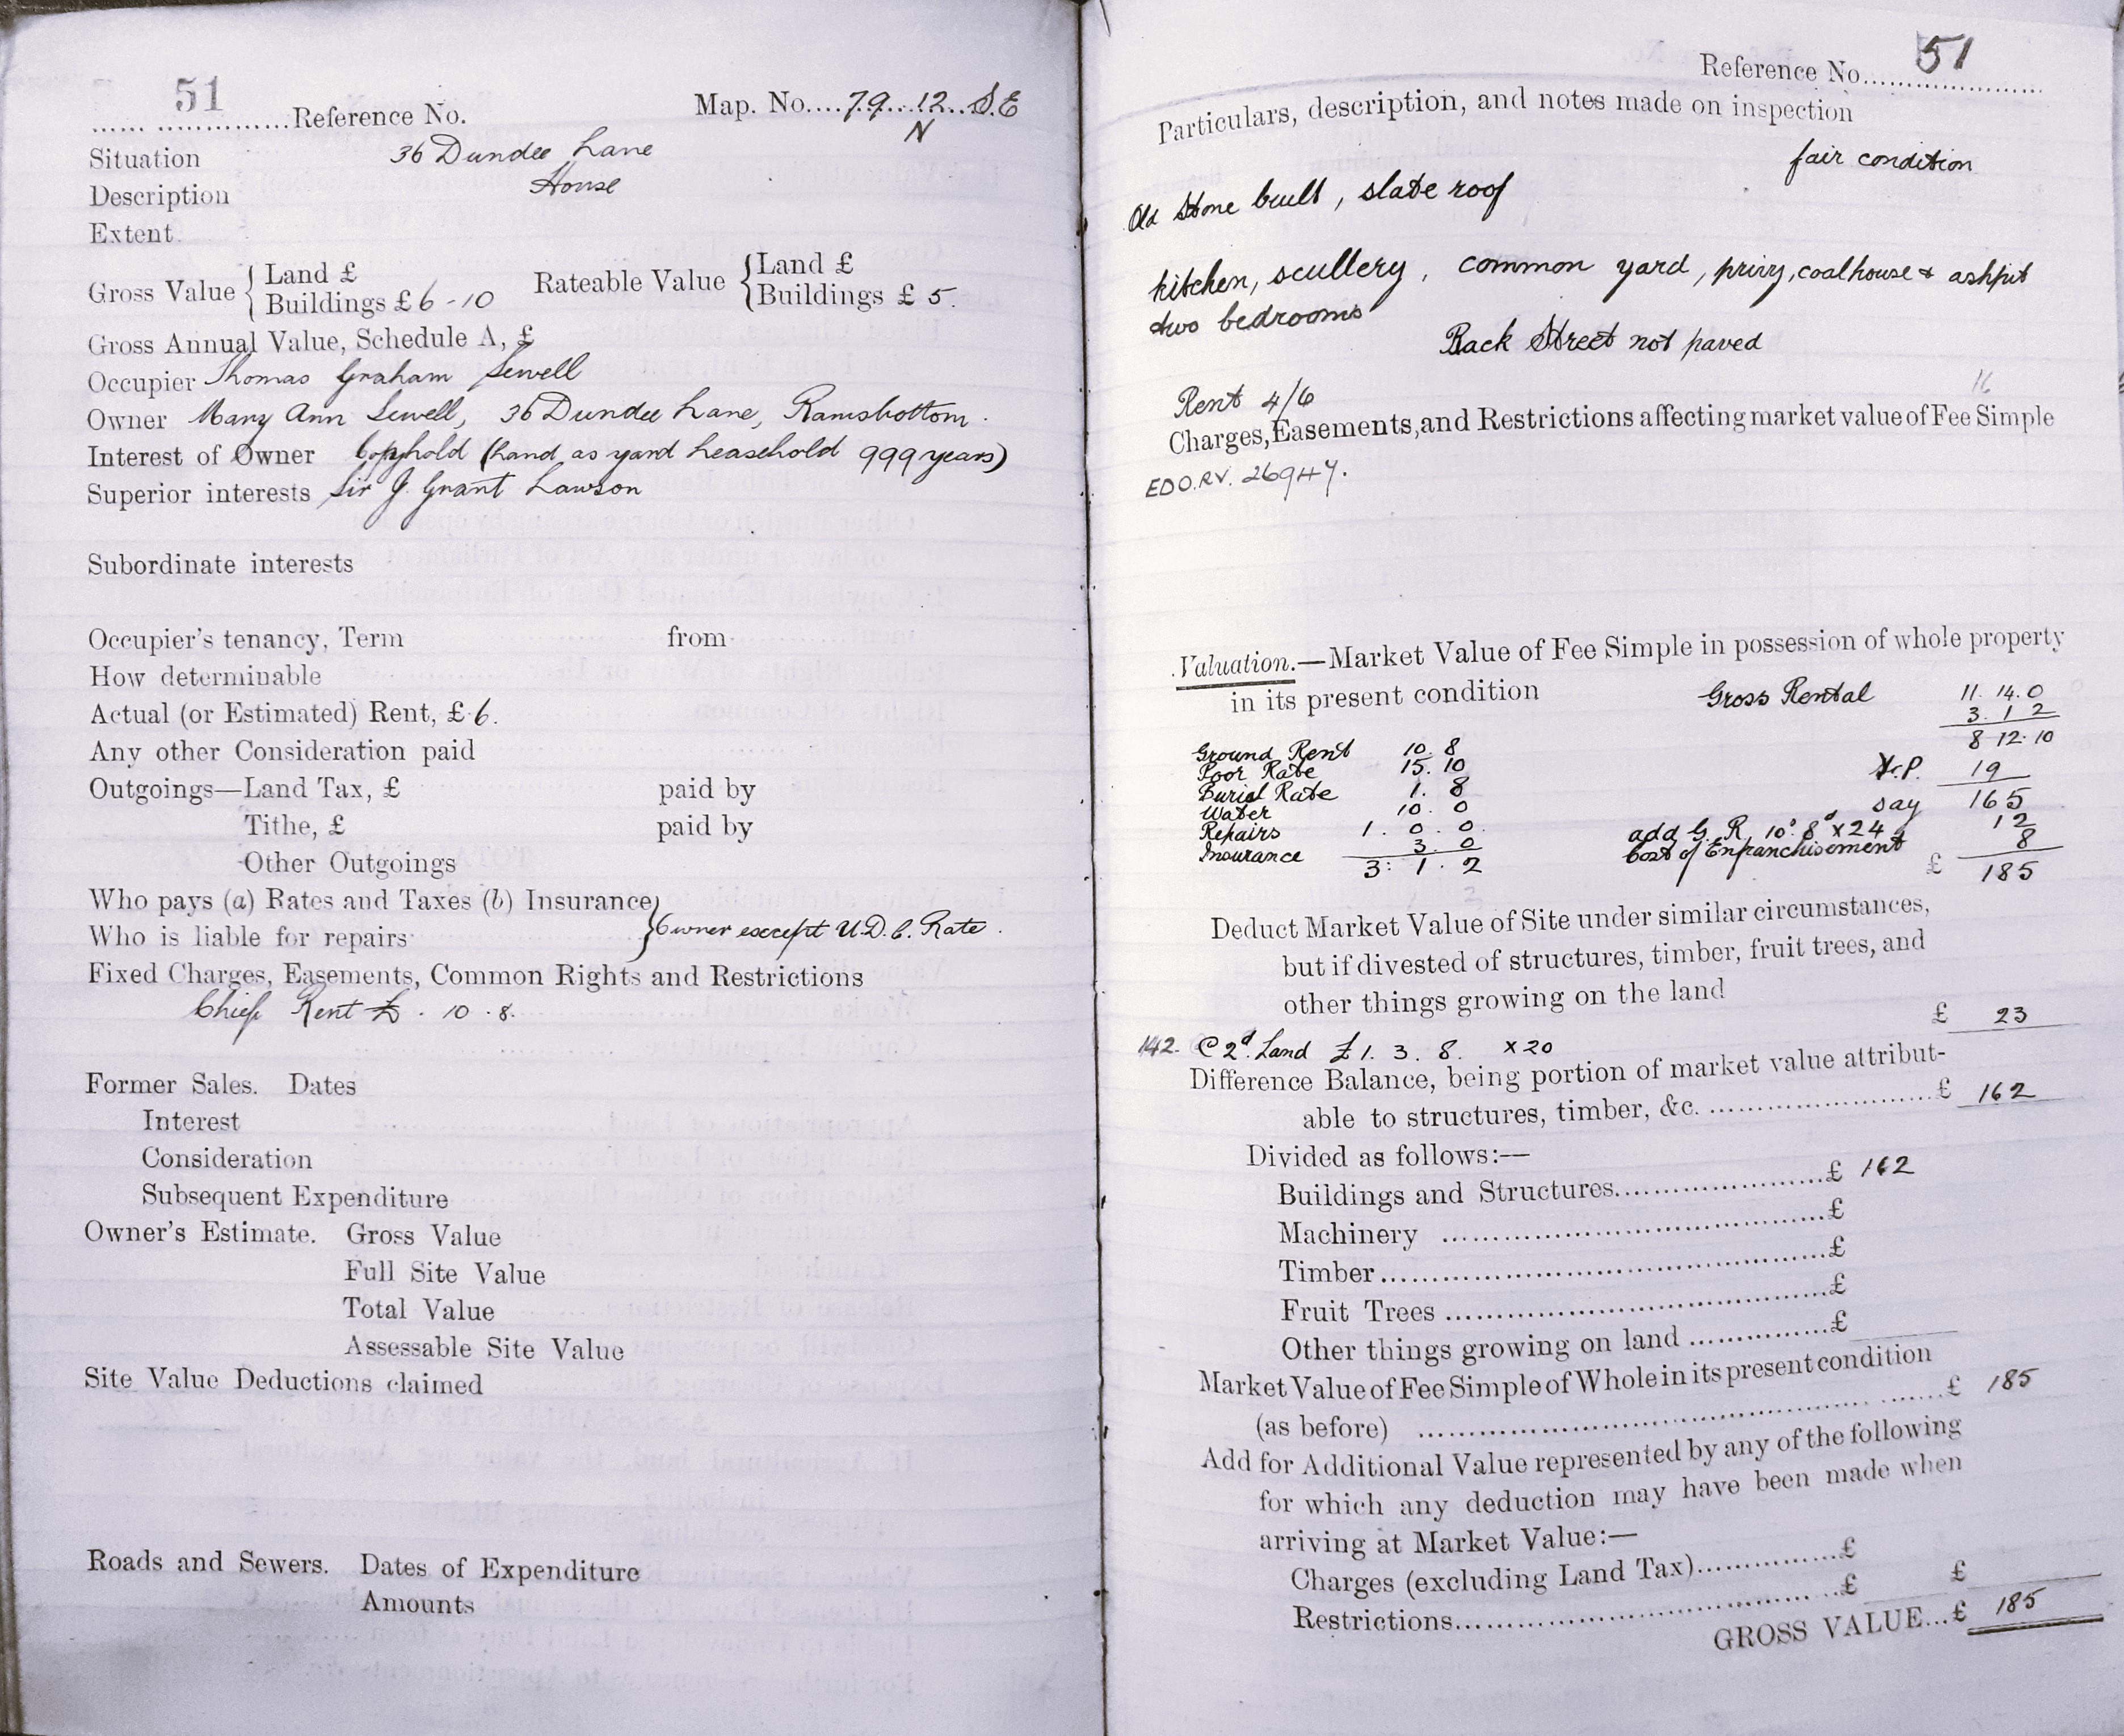 51
Reference No. Map. No....79...12...S.E
N
Situation 36 Dundee Lane
Description House
Extent
Gross Value { Land £
Buildings £ 6 - 10
Rateable Value { Land £
Buildings £ 5.
Gross Annual Value, Schedule A, £
Occupier Thomas Graham Sewell
Owner Mary Ann Sewell, 36 Dundee Lane, Ramsbottom.
Interest of Owner Copyhold (Land as yard Leasehold 999 years)
Superior interests Sir J. Grant Lawson
Subordinate interests
Occupier's tenancy, Term from
How determinable
Actual (or Estimated) Rent, £ 6.
Any other Consideration paid
Outgoings—Land Tax, £ paid by
Tithe, £ paid by
Other Outgoings
Who pays (a) Rates and Taxes (b) Insurance
Who is liable for repairs } Owner except U.D.C. Rate.
Fixed Charges, Easements, Common Rights and Restrictions
Chief Rent £ . 10 . 8.
Former Sales. Dates
Interest
Consideration
Subsequent Expenditure
Owner's Estimate. Gross Value
Full Site Value
Total Value
Assessable Site Value
Site Value Deductions claimed
Roads and Sewers. Dates of Expenditure
Amounts
Reference No. 51
Particulars, description, and notes made on inspection
fair condition
Old Stone built, slate roof
kitchen, scullery, common yard, privy, coalhouse & ashpit
two bedrooms
Back Street not paved
Rent 4/6
16
Charges, Easements, and Restrictions affecting market value of Fee Simple
EDO.RV. 26947.
Valuation.—Market Value of Fee Simple in possession of whole property
in its present condition Gross Rental 11. 14. 0
3. 1 2
8 12. 10
Ground Rent 10. 8
Poor Rate 15. 10
Burial Rate 1. 8
Water 10. 0
Repairs 1. 0. 0.
Insurance 3. 0
3: 1. 2
Y.P. 19
say 165
add G. R. 10s. 8d x 24 12
Cost of Enfranchisement 8
£ 185
Deduct Market Value of Site under similar circumstances,
but if divested of structures, timber, fruit trees, and
other things growing on the land
£ 23
142. @ 2d. Land £ 1. 3. 8. x 20
Difference Balance, being portion of market value attribut-
able to structures, timber, &c. £ 162
Divided as follows:—
Buildings and Structures £ 162
Machinery £
Timber £
Fruit Trees £
Other things growing on land £
Market Value of Fee Simple of Whole in its present condition
(as before) £ 185
Add for Additional Value represented by any of the following
for which any deduction may have been made when
arriving at Market Value:—
Charges (excluding Land Tax) £
Restrictions £ £
GROSS VALUE...£ 185